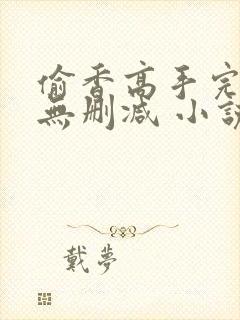 偷香高手完
無刪減 小說
戴夢